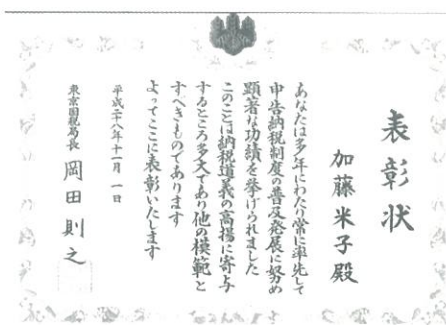 表彰状
加藤米子殿
あなたは多年にわたり常に率先して
申告納税制度の普及発展に努め
顕著な功績を挙げられました
このことは納税道義の高揚に寄与
するところ多大であり他の模範と
すべきものであります
よってここに表彰いたします
平成二十八年十一月一日
東京国税局長 岡田則之